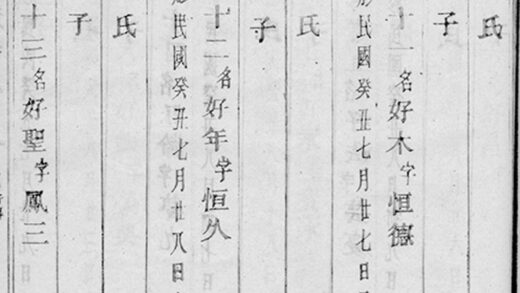 氏
子
十一名好木字恒德
民國癸丑七月廿七日
氏
子
十二名好年字恒久
民國癸丑七月廿八日
氏
子
十三名好聖字鳳三